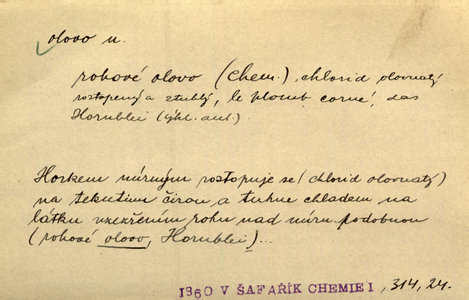 olovo n.
rohové olovo (chem.), chlorid olovnatý
roztopený a ztuhlý, le plomb corné, das
Hornblei
Horkem mírným roztopuje se (chlorid olovnatý)
na tekutinu čirou a tuhne chladem na
látku vzezřením rohu nad míru podobnou
(rohové olovo, Hornblei)...
1860 V ŠAFAŘÍK CHEMIE I , 314, 24.